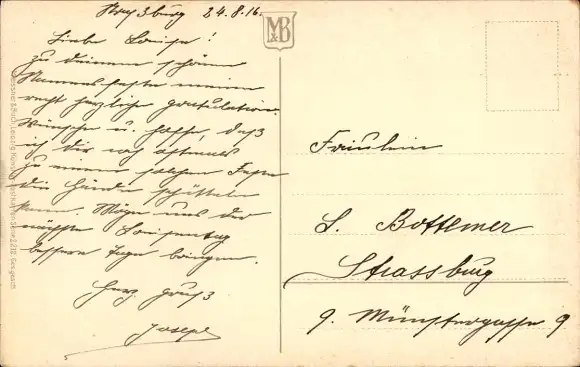 Straßburg 24.8.16.
Liebe Louise!
zu deinem schönen
Namensfeste meine
recht herzliche Gratulation.
Wünsche u. hoffe, daß
ich dir noch oftmals
zu einem solchen Feste
die Hände schütteln
kann. Möge uns der
nächste Louisentag
bessere Tage bringen.
Herz. Gruß
Joseph
M&B
Fräulein
L. Bottemer
Strassburg
9. Münstergasse 9